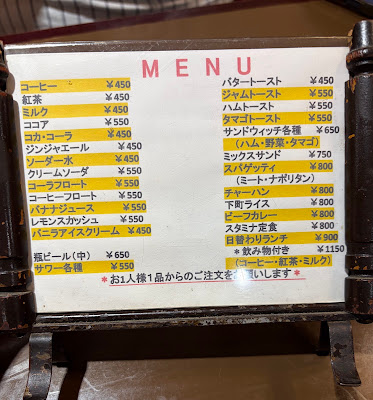 MENU
コーヒー ¥450
紅茶 ¥450
ミルク ¥450
ココア ¥550
コカ・コーラ ¥450
ジンジャエール ¥450
ソーダー水 ¥450
クリームソーダ ¥550
コーラフロート ¥550
コーヒーフロート ¥550
バナナジュース ¥550
レモンスカッシュ ¥550
バニラアイスクリーム ¥450
瓶ビール(中) ¥650
サワー各種 ¥550
バタートースト ¥450
ジャムトースト ¥550
ハムトースト ¥550
タマゴトースト ¥550
サンドウィッチ各種 ¥650
(ハム・野菜・タマゴ)
ミックスサンド ¥750
スパゲッティ ¥800
(ミート・ナポリタン)
チャーハン ¥800
下町ライス ¥800
ビーフカレー ¥800
スタミナ定食 ¥800
日替わりランチ ¥900
*飲み物付き ¥1150
(コーヒー・紅茶・ミルク)
*お1人様1品からのご注文をお願いします*